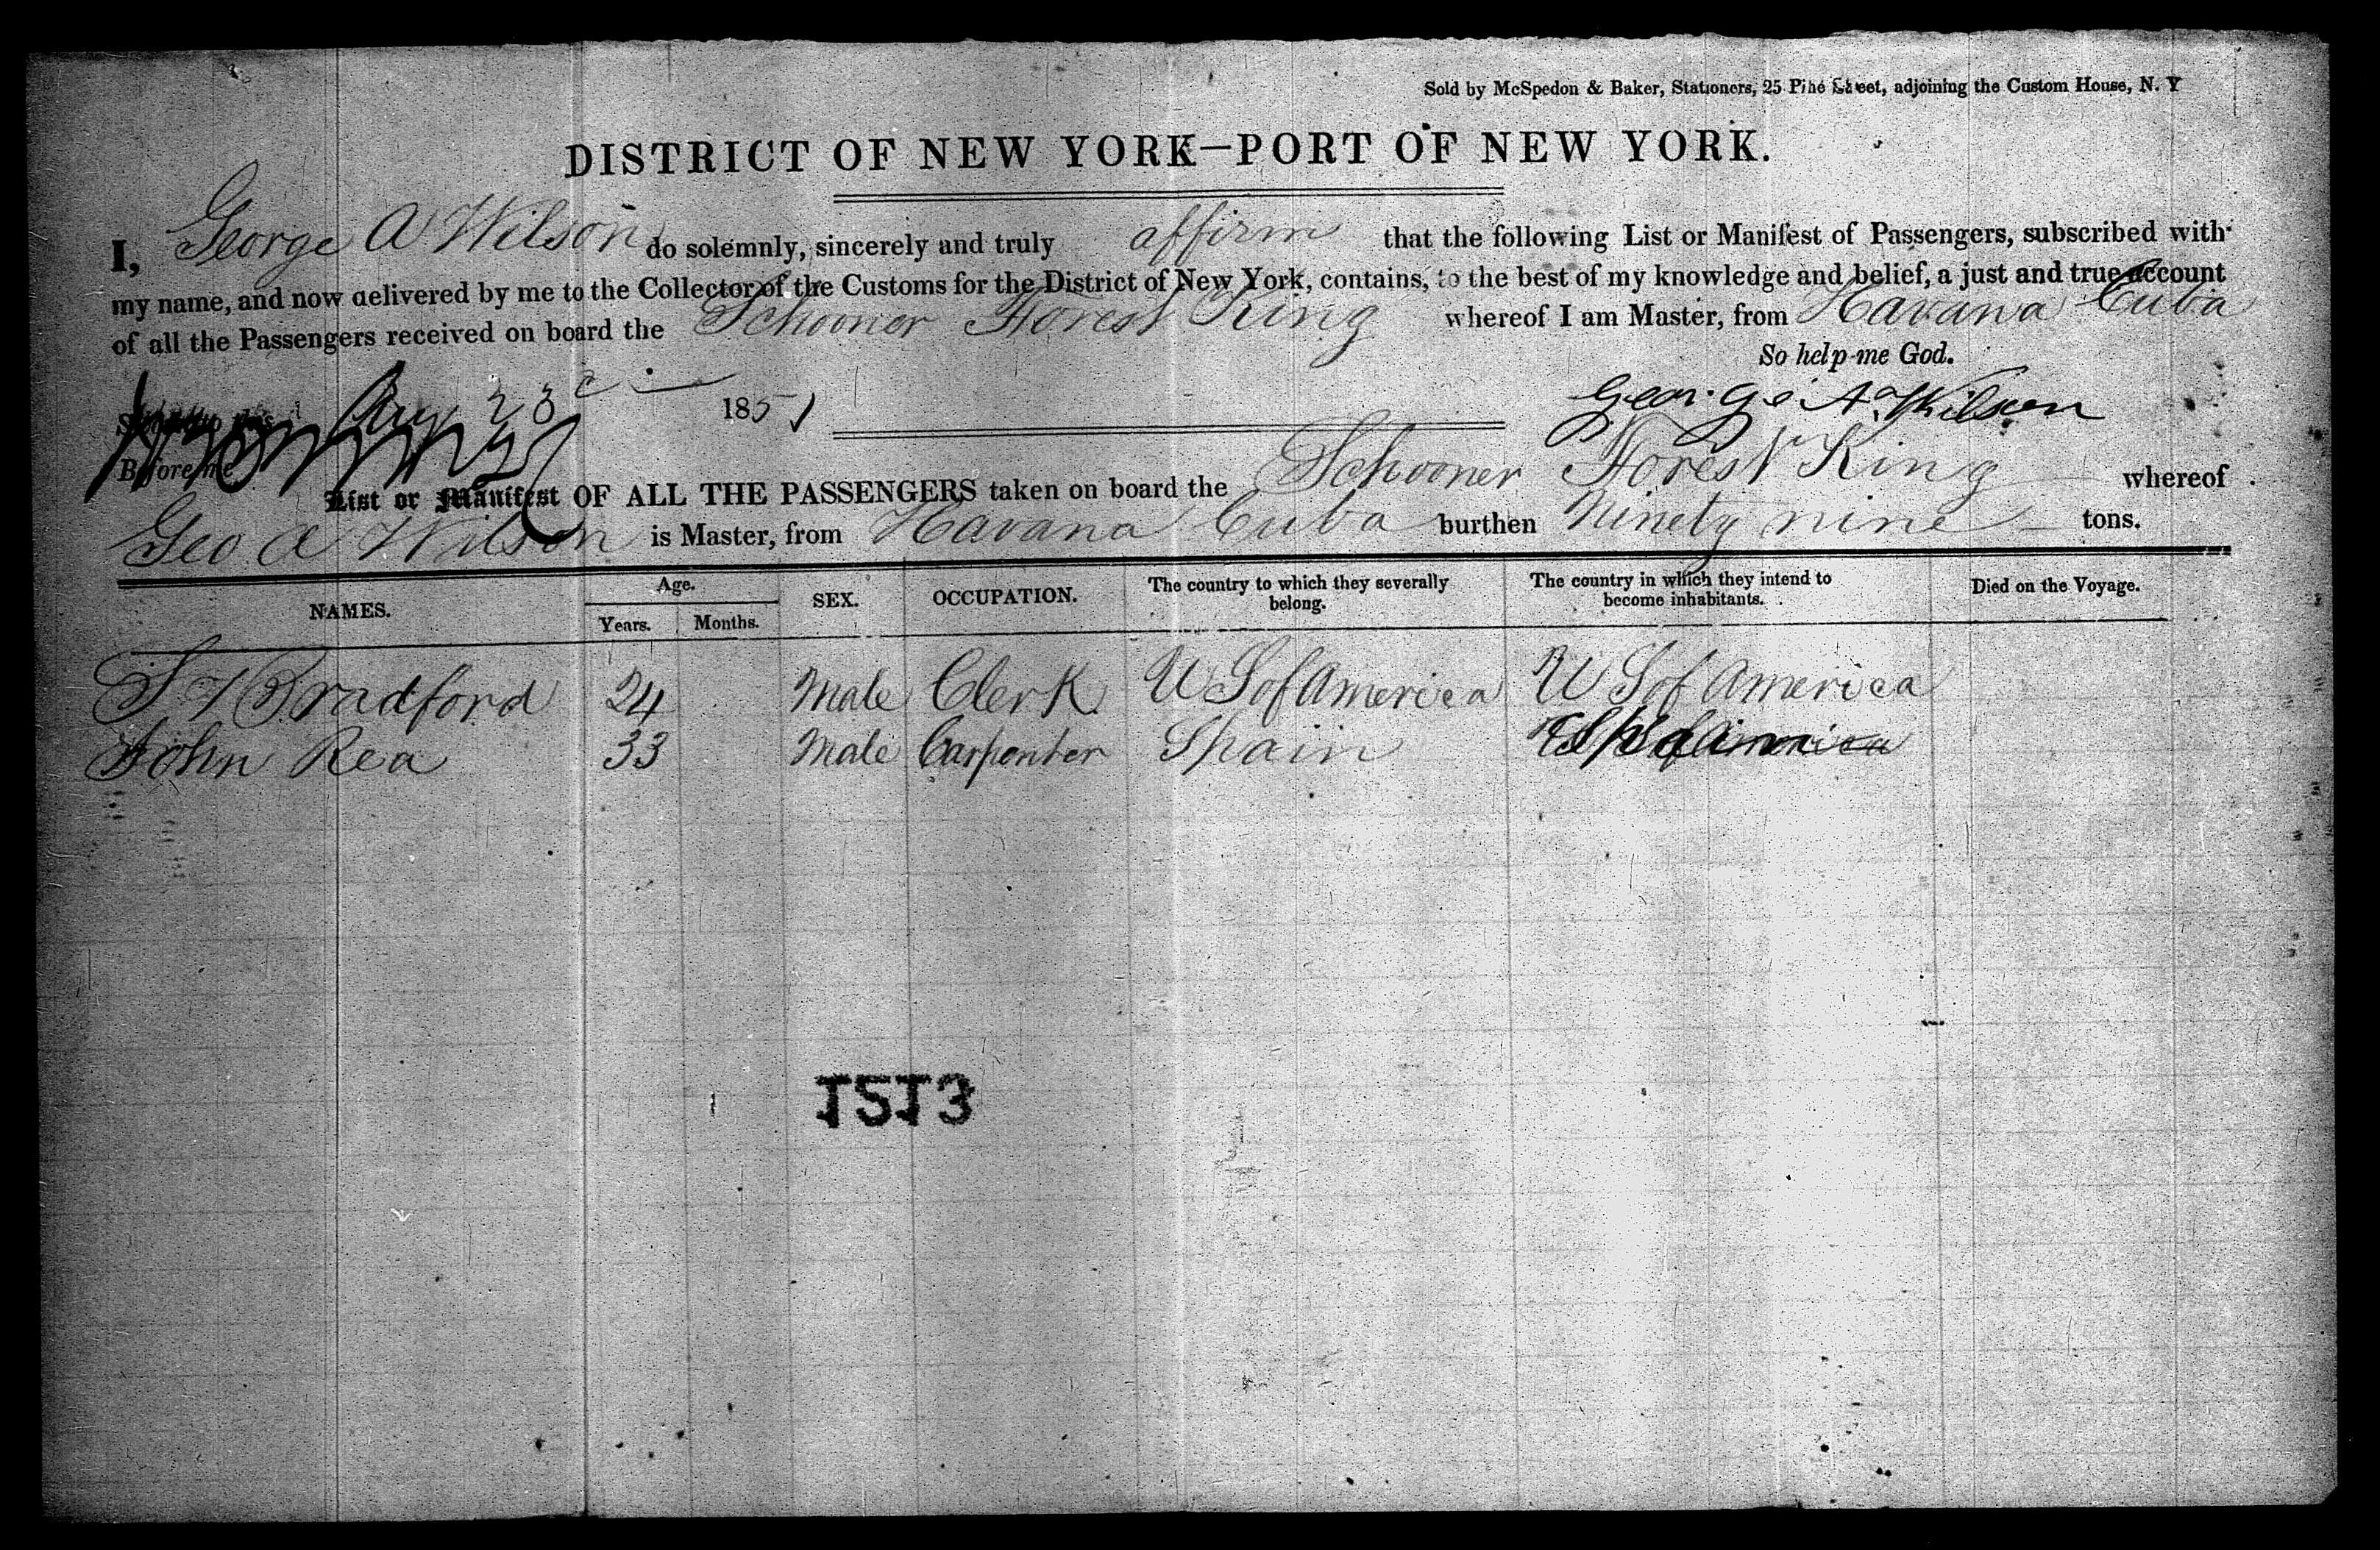 Sold by McSpedon & Baker, Stationers, 25 Pine Street, adjoining the Custom House, N. Y
DISTRICT OF NEW YORK—PORT OF NEW YORK.
I, George A Wilson do solemnly, sincerely and truly affirm that the following List or Manifest of Passengers, subscribed with
my name, and now delivered by me to the Collector of the Customs for the District of New York, contains, to the best of my knowledge and belief, a just and true account
of all the Passengers received on board the Schooner Forest King whereof I am Master, from Havana Cuba
So help me God.
Aug 23d 1851
George A. Wilson
Before me
List or Manifest OF ALL THE PASSENGERS taken on board the Schooner Forest King whereof
Geo A Wilson is Master, from Havana Cuba burthen Ninety nine tons.
NAMES. Age. Years. Months. SEX. OCCUPATION. The country to which they severally belong. The country in which they intend to become inhabitants. Died on the Voyage.
S T Bradford 24 Male Clerk U S of America U S of America
John Rea 33 Male Carpenter Spain
1513